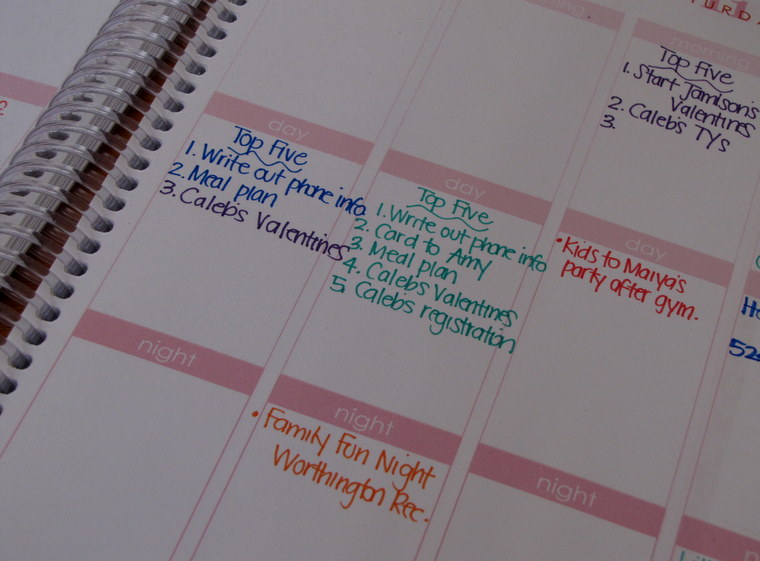 morning
day
Top Five
1. Write out phone info
2. Meal plan
3. Caleb's Valentines
night
day
Top Five
1. Write out phone info
2. Card to Amy
3. Meal plan
4. Caleb's Valentines
5. Caleb's registration
night
• Family Fun Night
Worthington Rec.
morning
Top Five
1. Start Jamison's
Valentines
2. Caleb's TYs
3.
day
• Kids to Maiya's
party after gym.
night
52